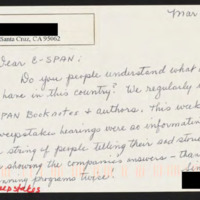 Mar
Santa Cruz, CA 95062
Dear C-SPAN:
Do you people understand what
have in this country? We regularly
SPAN Booknotes & authors. This week
sweepstakes hearings were so informative
string of people telling their sad stories
showing the companies answers - than
running programs twice!
sweepstakes